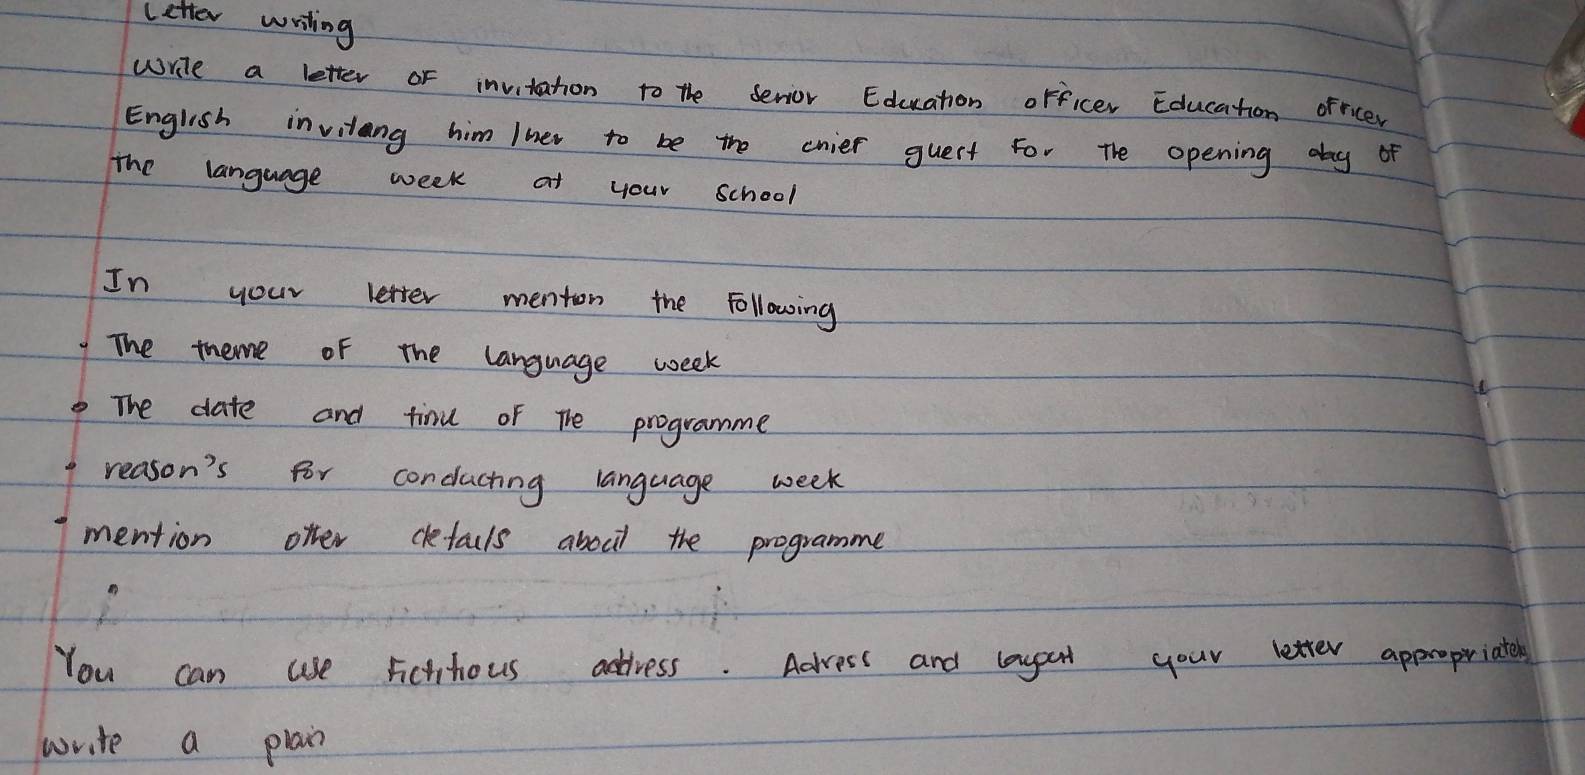 Letter writing
Write a letter of invitation to the Senior Education officer Education officer
English inviteng him / her to be the chief guest For The opening day of
the language week at your School
In your letter mention the Following
• The theme of The language week
• The date and time of The programme
• reason's for conducting language week
• mention other details about the programme
You can use Fictitious address . Adress and layout your letter appropriately
write a plan